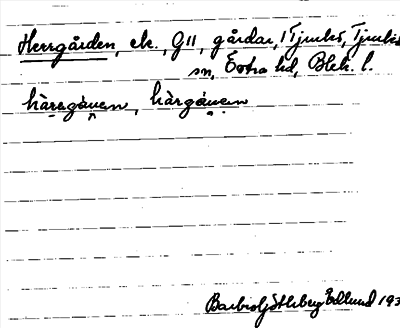 Herrgården, ek., G11, gårdar, i Tjurkö, Tjurkö
sn, Östra hd, Blek. l.
hàregá̀nen, hàrgá̀nen
Barbro Göthberg Edlund 193